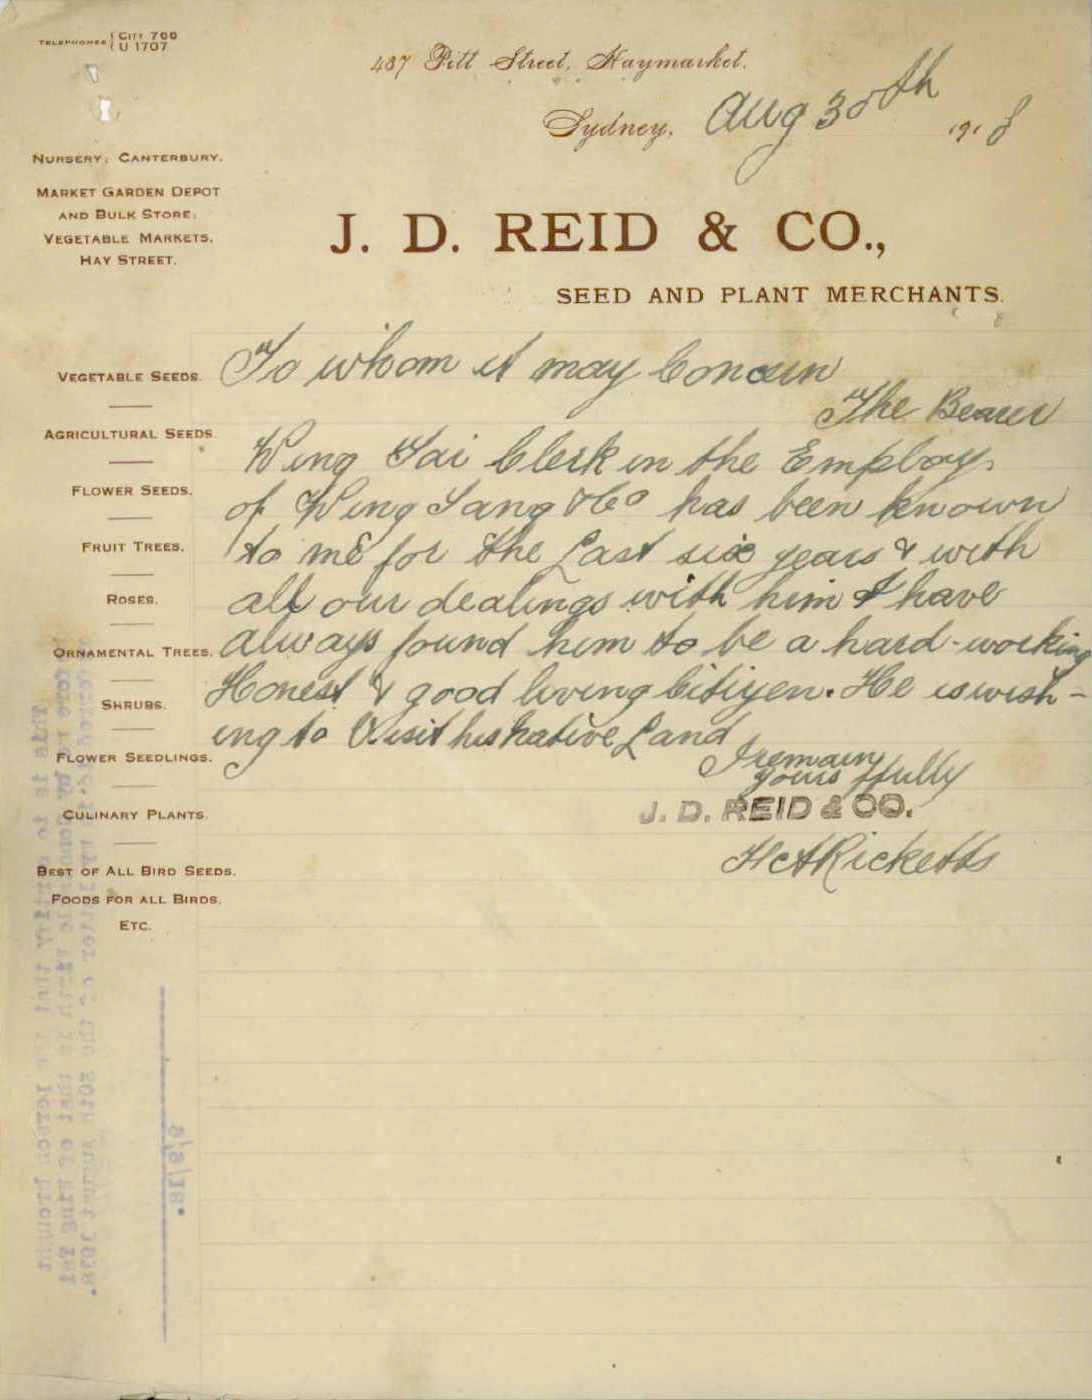 TELEPHONES { CITY 700
U 1707
437 Pitt Street, Haymarket.
Sydney, Aug 30th 1918
NURSERY: CANTERBURY.
MARKET GARDEN DEPOT
AND BULK STORE:
VEGETABLE MARKETS,
HAY STREET.
J. D. REID & CO.,
SEED AND PLANT MERCHANTS.
VEGETABLE SEEDS.
AGRICULTURAL SEEDS.
FLOWER SEEDS.
FRUIT TREES.
ROSES.
ORNAMENTAL TREES.
SHRUBS.
FLOWER SEEDLINGS.
CULINARY PLANTS.
BEST OF ALL BIRD SEEDS.
FOODS FOR ALL BIRDS.
ETC.
To whom it may Concern
The Bearer
Wing Tai Clerk in the Employ
of Wing Sang & Co has been known
to me for the Last six years & with
all our dealings with him I have
always found him to be a hard-working
Honest & good living Citizen. He is wish-
ing to Visit his native Land
I remain
yours ffully
J. D. REID & CO.
Ricketts